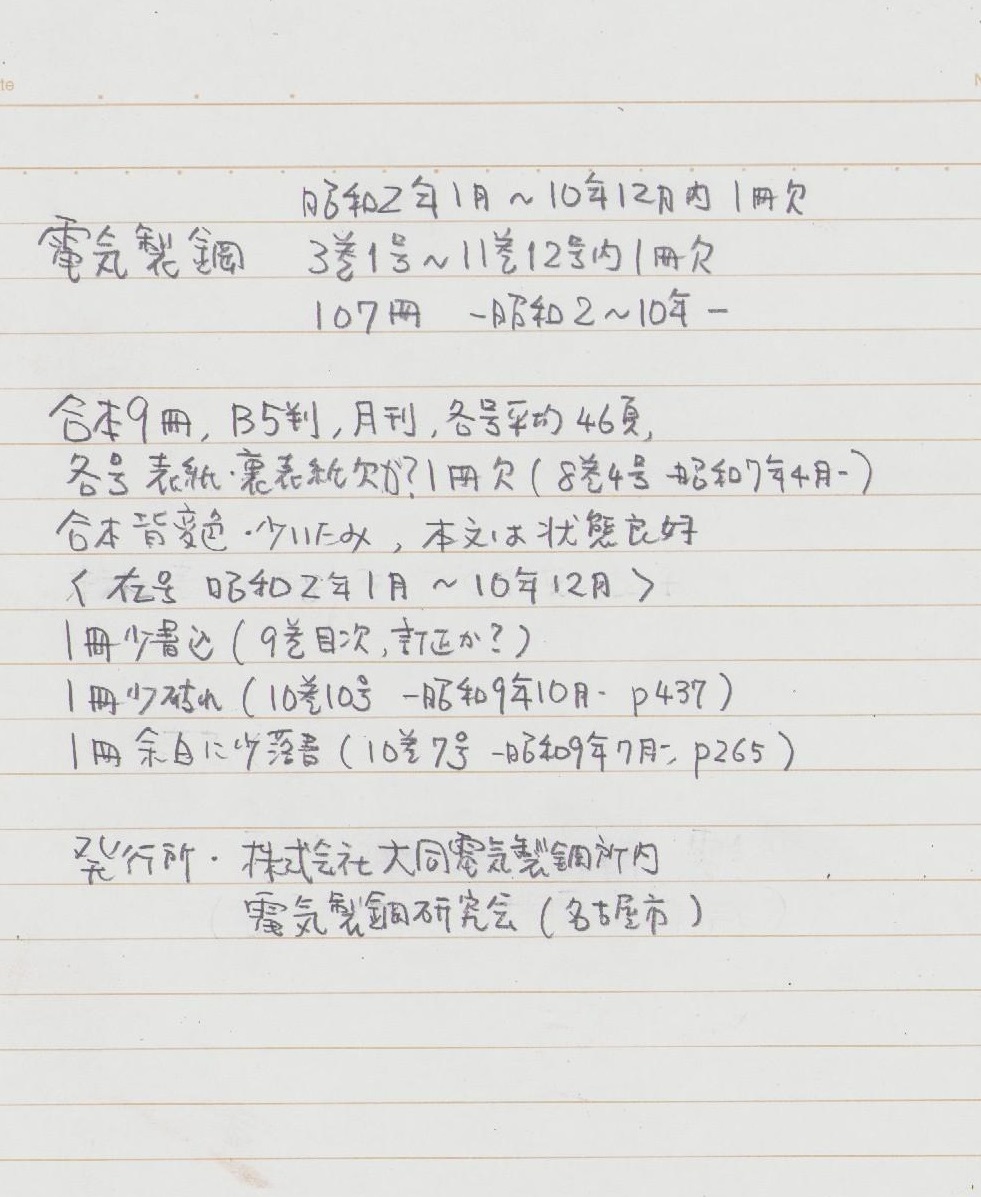 te
昭和2年1月～10年12月内1冊欠
電気製鋼 3巻1号～11巻12号内1冊欠
107冊 －昭和2～10年－
合本9冊, B5判, 月刊, 各号平均46頁,
各号表紙・裏表紙欠か?1冊欠(8巻4号－昭和7年4月－)
合本背変色・少いたみ, 本文は状態良好
〈在号 昭和2年1月～10年12月〉
1冊少書込(9巻目次, 訂正か?)
1冊少破れ(10巻10号－昭和9年10月- p437)
1冊余白に少落書(10巻7号－昭和9年7月－, p265)
発行所・株式会社大同電気製鋼所内
電気製鋼研究会(名古屋市)